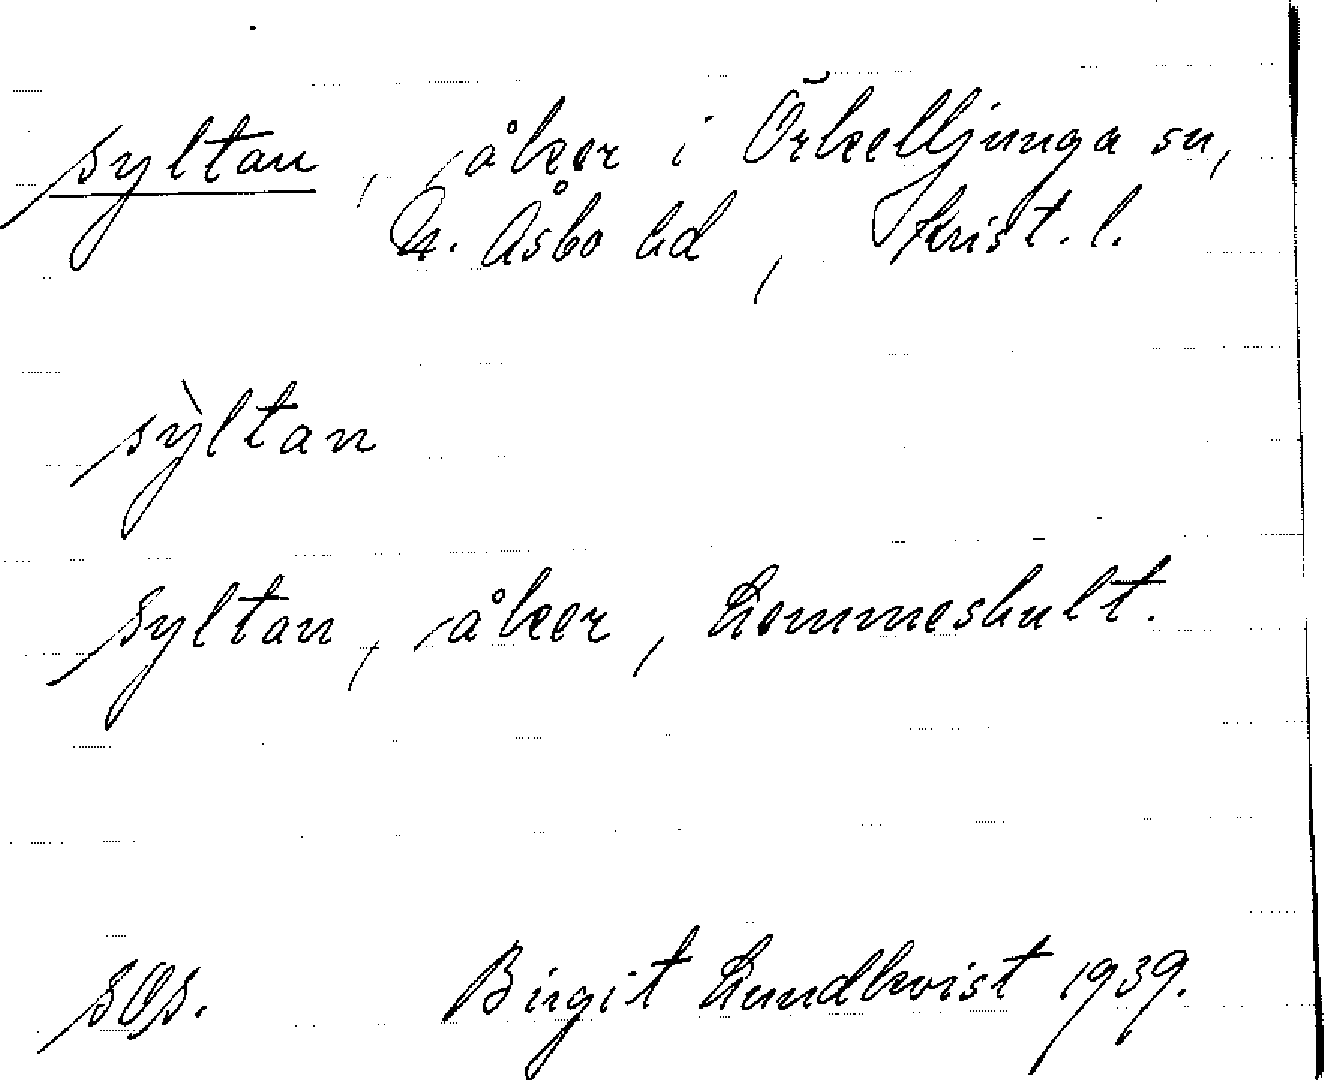 syltan, åker i Örkelljunga sn,
N. Åsbo hd, Krist. l.
sỳltan
syltan, åker, Lemmeshult.
SOS. Birgit Lundkvist 1939.